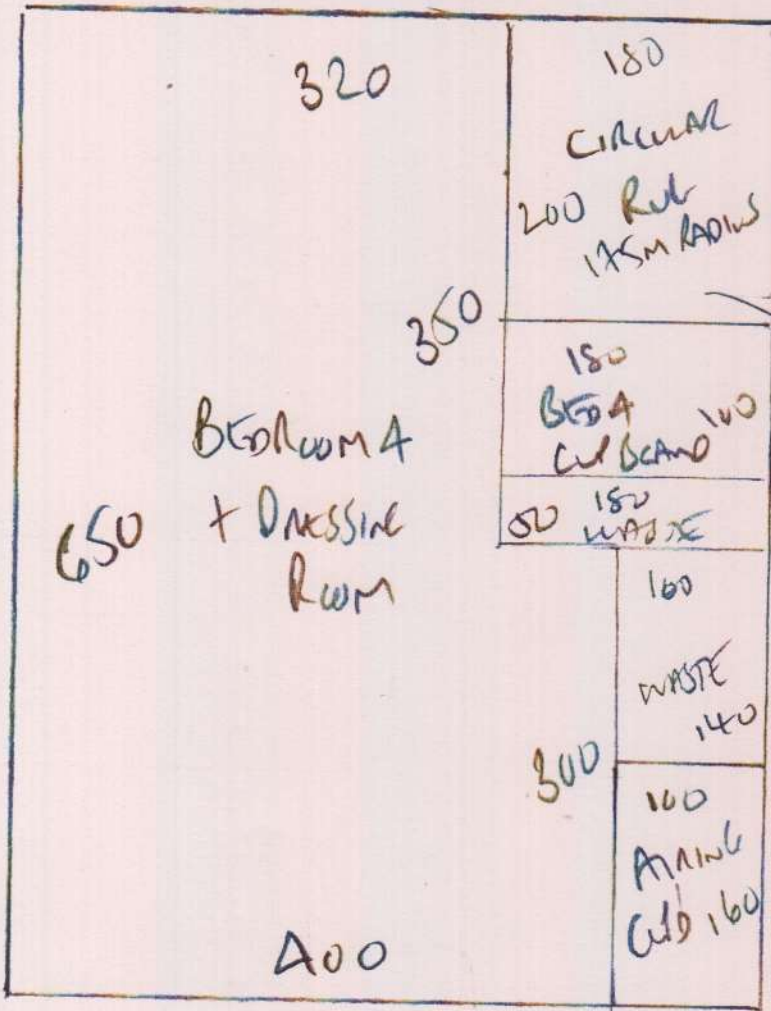 320
180
CIRCULAR
200 RUG
1.75M RADIUS
350
180
BED 4
CUPBOARD 100
BEDROOM 4
650 + DRESSING
ROOM
50 180
WASTE
100
WASTE
140
300
100
AIRING
CUPD 160
400